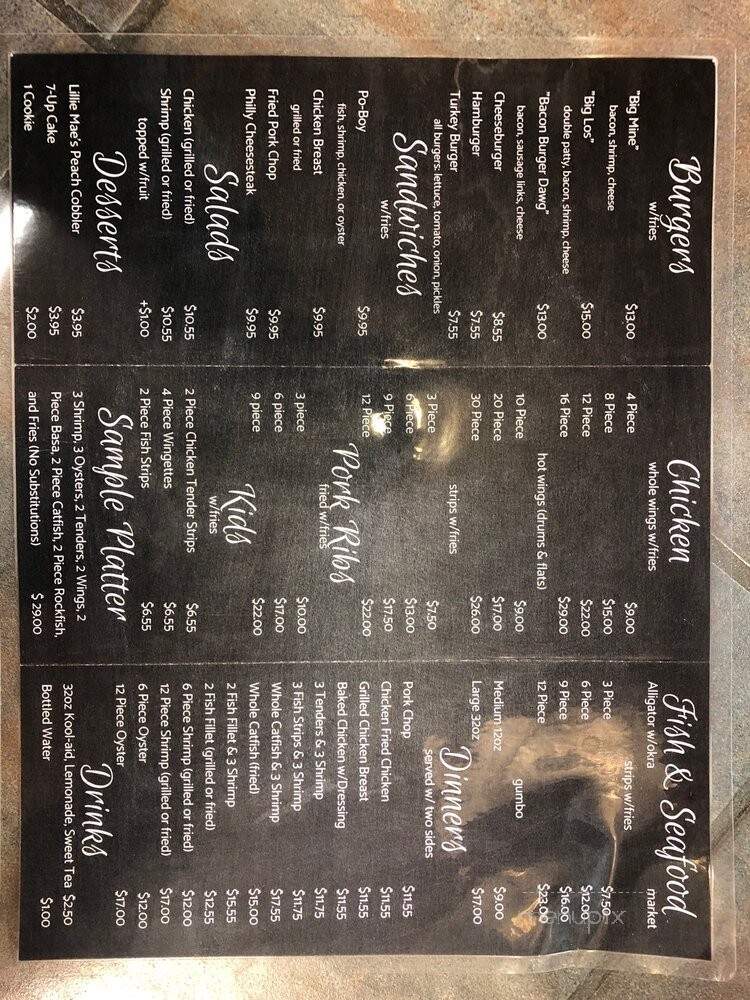 Burgers
w/fries
"Big Mine" $13.00
bacon, shrimp, cheese
"Big Los" $15.00
double patty, bacon, shrimp, cheese
"Bacon Burger Dawg" $13.00
bacon, sausage links, cheese
Cheeseburger $8.55
Hamburger $7.55
Turkey Burger $7.55
all burgers: lettuce, tomato, onion, pickles
Sandwiches
w/fries
Po-Boy $9.95
fish, shrimp, chicken, or oyster
Chicken Breast $9.95
grilled or fried
Fried Pork Chop $9.95
Philly Cheesesteak $9.95
Salads
Chicken (grilled or fried) $10.55
Shrimp (grilled or fried) $10.55
topped w/fruit +$1.00
Desserts
Lillie Mae's Peach Cobbler $3.95
7-Up Cake $3.95
1 Cookie $2.00
Chicken
whole wings w/fries
4 Piece $9.00
8 Piece $15.00
12 Piece $22.00
16 Piece $29.00
hot wings (drums & flats)
10 Piece $9.00
20 Piece $17.00
30 Piece $26.00
strips w/fries
3 Piece $7.50
6 Piece $13.00
9 Piece $17.50
12 Piece $22.00
Pork Ribs
fried w/fries
3 piece $10.00
6 piece $17.00
9 piece $22.00
Kids
w/fries
2 Piece Chicken Tender Strips $6.55
4 Piece Wingettes $6.55
2 Piece Fish Strips $6.55
Sample Platter
3 Shrimp, 3 Oysters, 2 Tenders, 2 Wings, 2
Piece Basa, 2 Piece Catfish, 2 Piece Rockfish,
and Fries (No Substitutions) $ 29.00
Fish & Seafood
Alligator w/okra market
strips w/fries
3 Piece $7.50
6 Piece $12.00
9 Piece $16.00
12 Piece $23.00
gumbo
Medium 12oz $9.00
Large 32oz $17.00
Dinners
served w/ two sides
Pork Chop $11.55
Chicken Fried Chicken $11.55
Grilled Chicken Breast $11.55
Baked Chicken w/Dressing $11.55
3 Tenders & 3 Shrimp $11.75
3 Fish Strips & 3 Shrimp $11.75
Whole Catfish & 3 Shrimp $17.55
Whole Catfish (fried) $15.00
2 Fish Fillet & 3 Shrimp $15.55
2 Fish Fillet (grilled or fried) $12.55
6 Piece Shrimp (grilled or fried) $12.00
12 Piece Shrimp (grilled or fried) $17.00
6 Piece Oyster $12.00
12 Piece Oyster $17.00
Drinks
32oz Kool-aid, Lemonade, Sweet Tea $2.50
Bottled Water $1.00